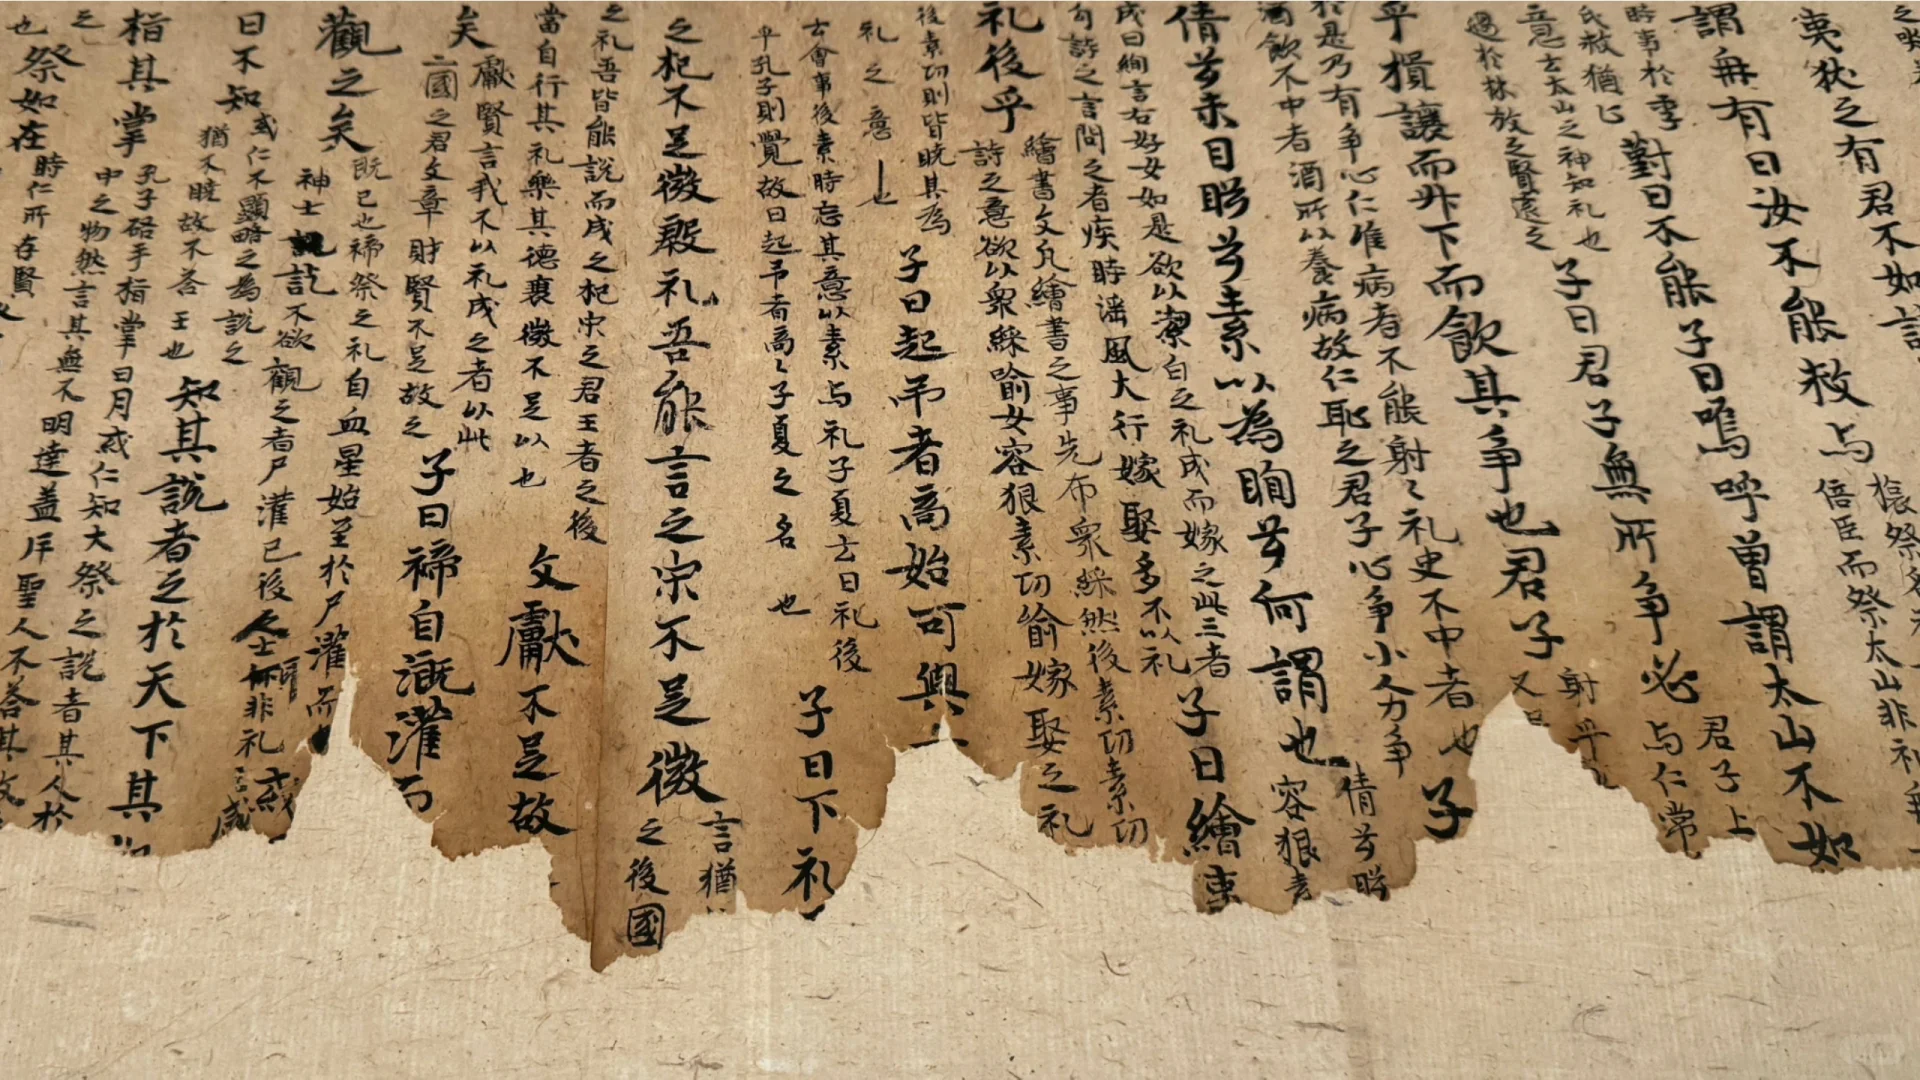 夷狄之有君不如諸
謂冉有曰汝不能救与
陪臣而祭太山非礼
時事於季
氏救猶止
對曰不能子曰嗚呼曾謂太山不如
意士太山之神知礼也
過於林放之賢遠之
子曰君子無所争必
君子上
与仁常
乎損讓而升下而飲其争也君子
射乎
又曰
於是乃有争心仁唯病者不能射々礼史不中者也
酒飲不中者酒所以養病故仁耻之君子心争小人力争
子
倩兮美目盼兮素以為絢兮何謂也
倩兮盼
容狠素
成曰絢言右好女如是欲以潔白之礼成而嫁之此三者
句詩之言問之者疾時謡風大行嫁娶多不以礼
子曰繪事
礼後乎
繪書文凡繪書之事先布衆綵然後素功素功
詩之意欲以衆綵喻女容狠素功喻嫁娶之礼
後素功則皆曉其為
礼之意一也
子曰起予者商始可與
去會事後素時忘其意以素与礼子夏云曰礼後
乎孔子則覺故曰起予者商々子夏之名也
子曰下礼
之杞不足徵殷礼吾能言之宋不足徵
言猶
之後國
之礼吾皆能説而成之杞宋之君王者之後
當自行其礼樂其德襄徵不足以也
文獻不足故
矣
獻賢言我不以礼成之者以此
二國之君文章財賢不足故之
子曰禘自溉灌而
觀之矣
既已也禘祭之礼自血星始至於尸灌而
神士説不欲觀之者尸灌已後人士非礼
曰不知
或仁不顯略之為説之
猶不曉故不荅王也
知其説者之於天下其
指其掌
孔子手指掌曰月或仁知大祭之説者其人於
中之物然言其無不明達蓋斥聖人不荅其故
之
也
祭如在
時仁所存賢